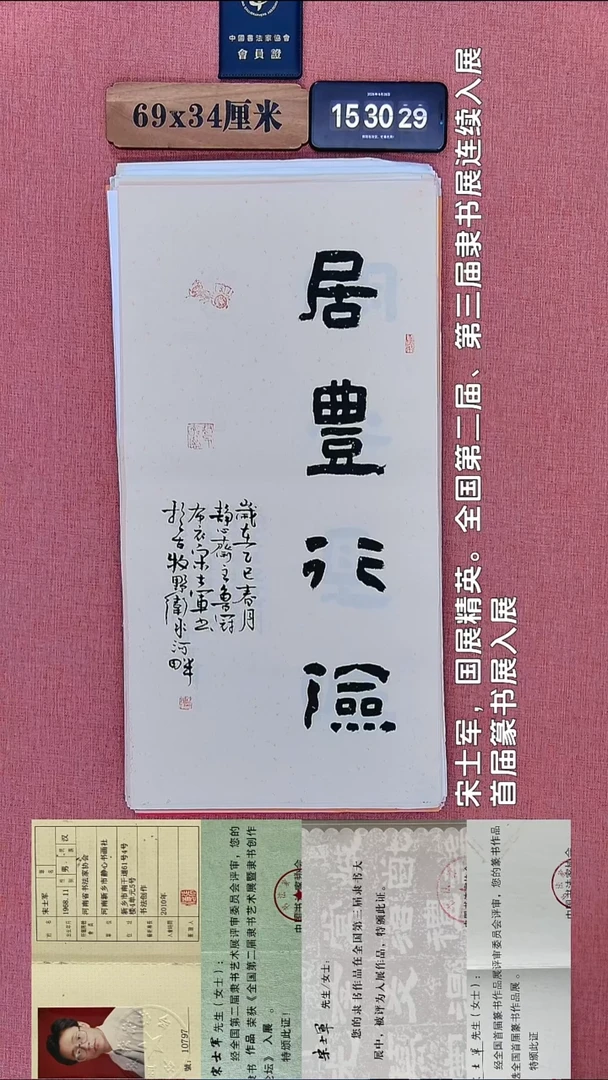 中國書法家協會
會員證
69x34厘米
15 30 29
居
豊
行
歲在乙巳春月
靜心齋主
布衣宋士軍書
於古牧野衛水河畔
宋士军，国展精英。全国第二届、第三届隶书展连续入展
首届篆书展入展
宋士军
1968.11
男
汉
河南省书法家协会
河南新乡市静心书画社
新乡市南干道61号4号
楼4单元5号
书法创作
2010年
號：10797
宋士军 先生（女士）：
经全国第二届隶书艺术展评审委员会评审，您的
隶书 作品 荣获《全国第二届隶书艺术展暨隶书创作
论坛》 入展 。
特颁此证！
宋士军 先生/女士：
您的隶书作品在全国第三届隶书大
展中，被评为入展作品，特颁此证。
士军 先生（女士）：
经全国首届篆书作品展评审委员会评审，您的篆书作品
选全国首届篆书作品展 。
特颁此证